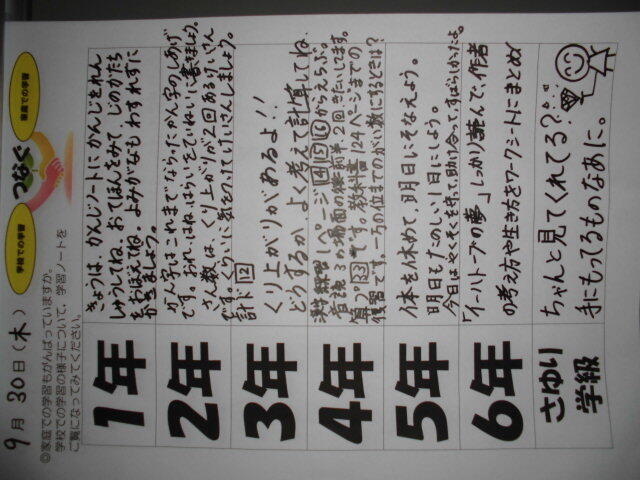 9月30日(木)
学校での学習
つなぐ
家庭での学習
◎家庭での学習もがんばっていますか。
学校での学習の様子について、学習ノートを
ご覧になってみてください。
1年
きょうは、かんじノートにかんじをれん
しゅうしてね。おてほんをみて、じのかたち
をおぼえてね。よみがなもわすれずに
かきましょう。
2年
かん字はこれまでならったかん字のしあげ
です。おれ、はね、はらいをていねいに書きましょう。
さん数は、くり上がりが2回あるけいさん
です。くらいに気をつけてけいさんしましょう。
3年
計ド12
くり上がりがあるよ!!
どうするかよく考えて計算してね。
4年
漢字練習1ページ 14 15 16 からえらぶ。
音読3の場面の 前半2回
算フ33です。教科書124ページまでの
復習です。一の位までのがい数にするときは?
5年
体を休めて、明日にそなえよう。
明日もたのしい1日にしよう。
今日はやく犬を守って、助け合って、すばらしかったよ。
6年
「イーハトーブの夢」しっかり読んで、作者
の考え方や生き方をワークシートにまとめ
さゆり
学級
ちゃんと見てくれてる?
手にもってるものなあに。